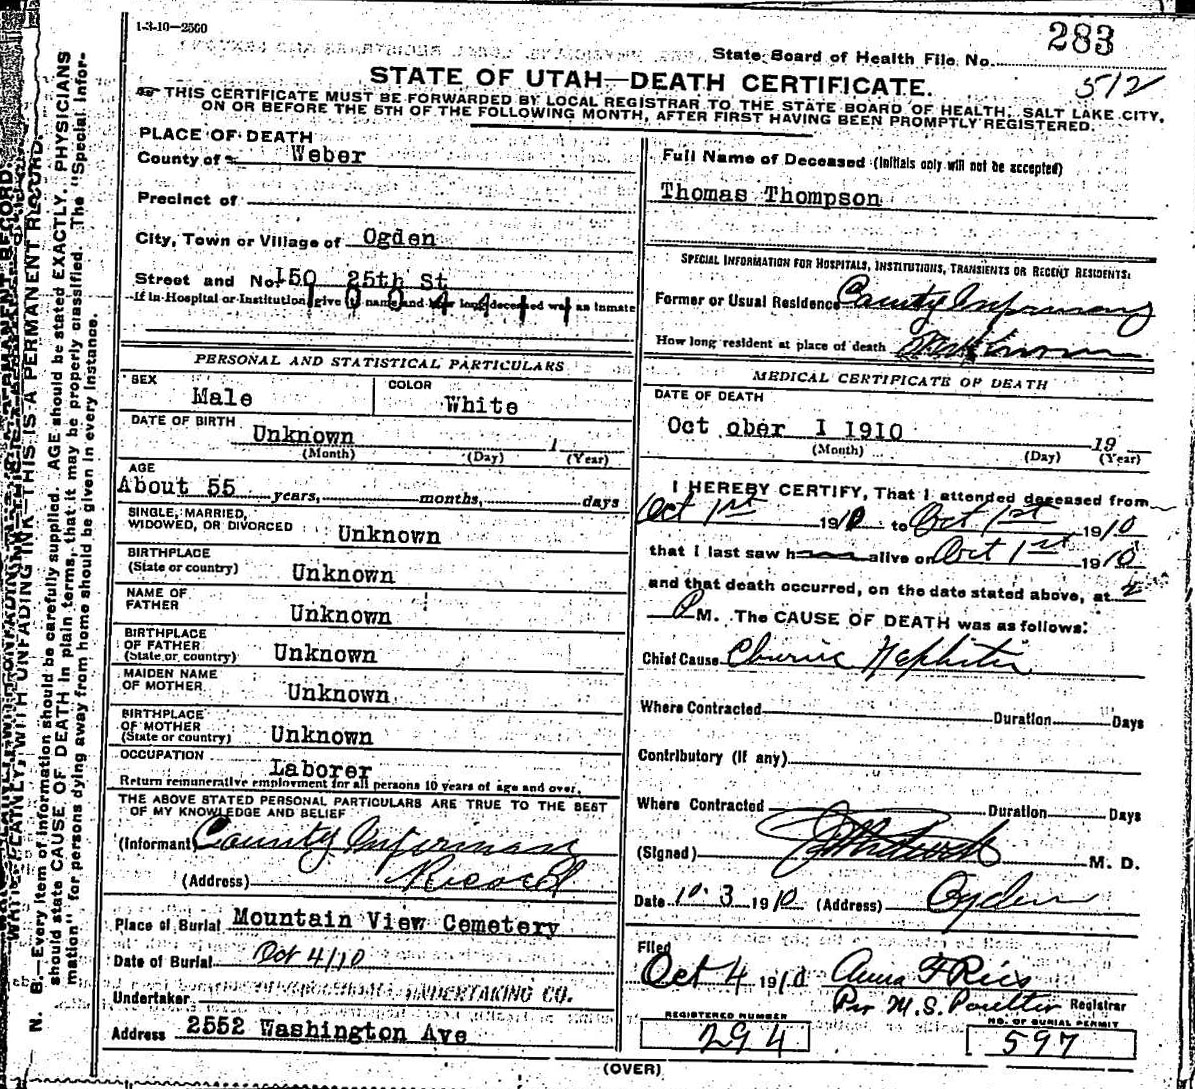 1-3-10—2500
283
State Board of Health File No.
512
STATE OF UTAH—DEATH CERTIFICATE.
THIS CERTIFICATE MUST BE FORWARDED BY LOCAL REGISTRAR TO THE STATE BOARD OF HEALTH, SALT LAKE CITY,
ON OR BEFORE THE 5TH OF THE FOLLOWING MONTH, AFTER FIRST HAVING BEEN PROMPTLY REGISTERED.
PLACE OF DEATH
County of Weber
Precinct of
City, Town or Village of Ogden
Street and No. 150 25th St
If in Hospital or Institution give name and how long deceased was an inmate
1004411
Full Name of Deceased (Initials only will not be accepted)
Thomas Thompson
SPECIAL INFORMATION FOR HOSPITALS, INSTITUTIONS, TRANSIENTS OR RECENT RESIDENTS:
Former or Usual Residence County Infirmary
How long resident at place of death
PERSONAL AND STATISTICAL PARTICULARS
SEX Male
COLOR White
DATE OF BIRTH
Unknown 1
(Month) (Day) (Year)
AGE
About 55 years, months, days
SINGLE, MARRIED,
WIDOWED, OR DIVORCED Unknown
BIRTHPLACE
(State or country) Unknown
NAME OF
FATHER Unknown
BIRTHPLACE
OF FATHER
(State or country) Unknown
MAIDEN NAME
OF MOTHER Unknown
BIRTHPLACE
OF MOTHER
(State or country) Unknown
OCCUPATION
Laborer
Return remunerative employment for all persons 10 years of age and over.
THE ABOVE STATED PERSONAL PARTICULARS ARE TRUE TO THE BEST
OF MY KNOWLEDGE AND BELIEF
(Informant) County
(Address)
Place of Burial Mountain View Cemetery
Date of Burial Oct 4/10
Undertaker UNDERTAKING CO.
Address 2552 Washington Ave
MEDICAL CERTIFICATE OF DEATH
DATE OF DEATH
Oct ober I 1910 19
(Month) (Day) (Year)
I HEREBY CERTIFY, That I attended deceased from
Oct 1st 1910 to Oct 1st 1910
that I last saw h alive on Oct 1st 1910
and that death occurred, on the date stated above, at 2
P M. The CAUSE OF DEATH was as follows:
Chief Cause
Where Contracted Duration Days
Contributory (if any)
Where Contracted Duration Days
(Signed) M. D.
Date 10. 3 1910 (Address) Ogden
Filed
Oct 4 1910 Anna F Ries
Per M. S. Poulter Registrar
REGISTERED NUMBER
294
NO. OF BURIAL PERMIT
597
(OVER)
WITH UNFADING INK—THIS IS A PERMANENT RECORD.
N. B.—Every item of information should be carefully supplied. AGE should be stated EXACTLY. PHYSICIANS
should state CAUSE OF DEATH in plain terms, that it may be properly classified. The "Special Infor-
mation" for persons dying away from home should be given in every instance.